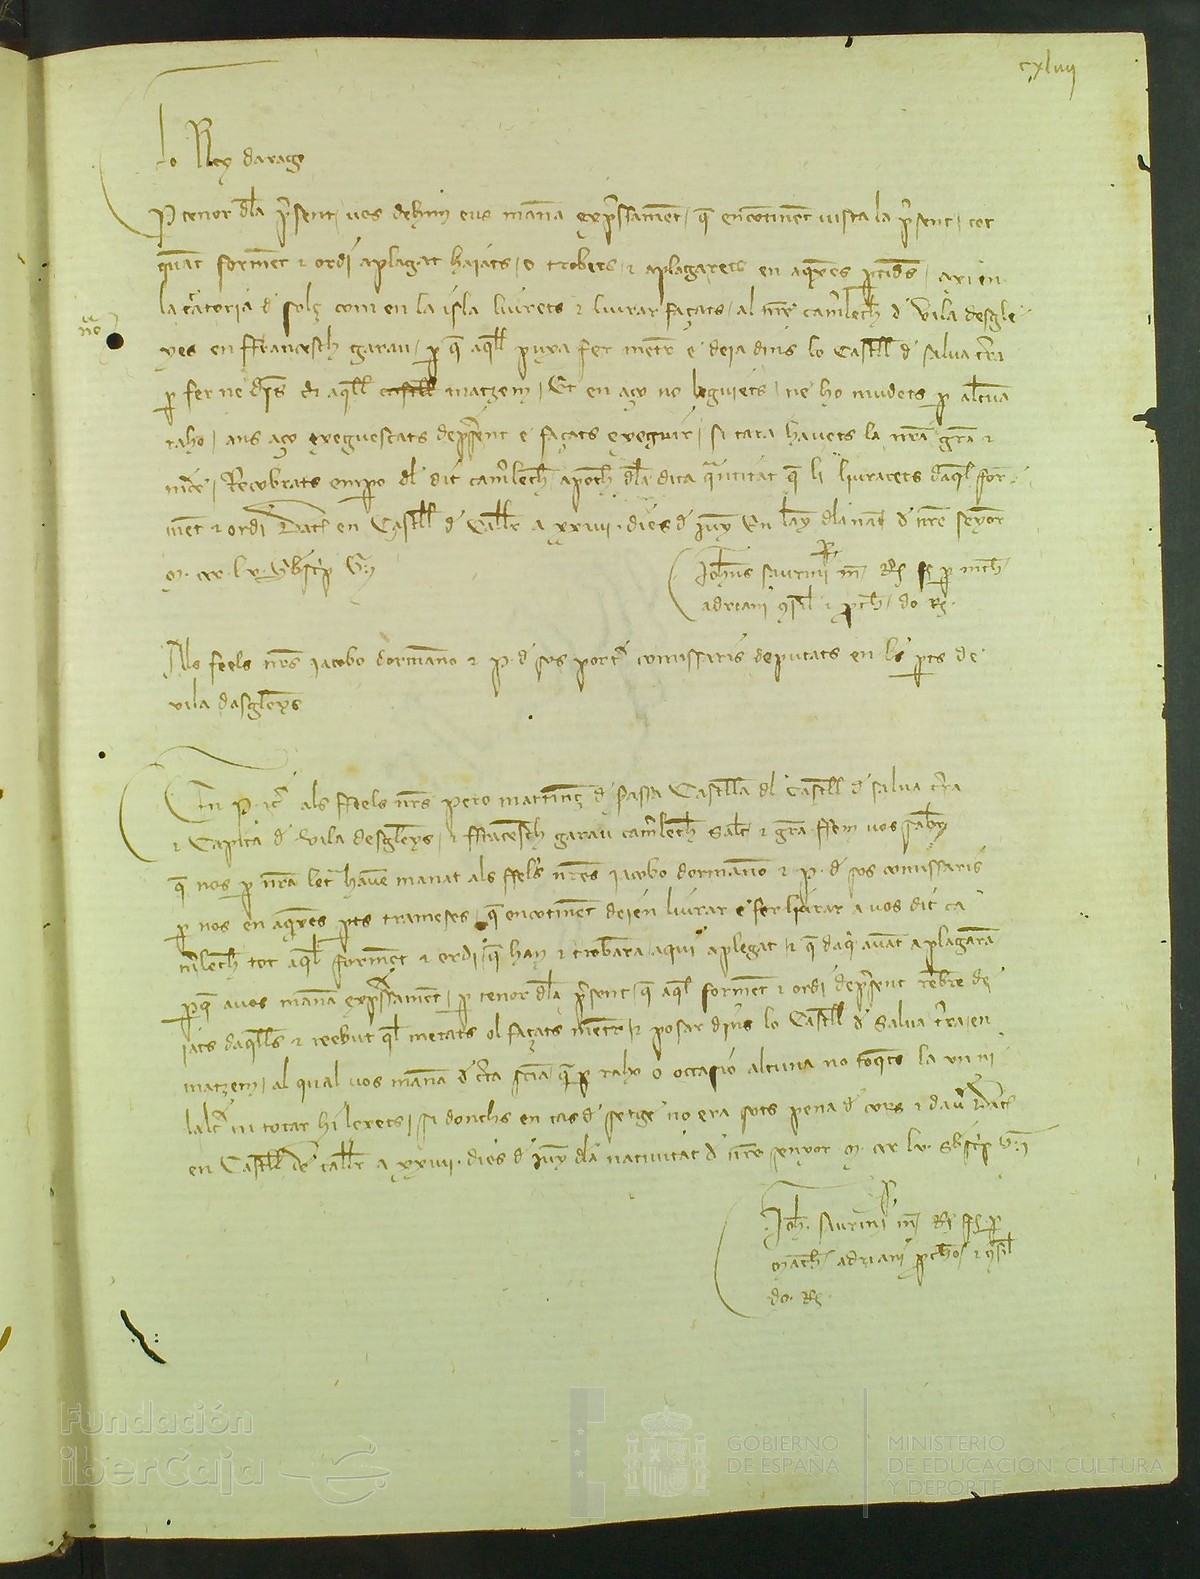 cxlviij
Lo Rey darago
Per tenor dla pñsent vos dehim eus manã expssament q encontinent vista la pñsent tot
quant forment e ordi aplagat haiats o trobets e aplagarets en aqxes ptides axi en
la tratoria d sols com en la isla liurets e liurar façats al nre camlech d vila desgle
yes en ffrancesch garau p q aqll puxa fer metre e deia dins lo Castell d salva tra
p fer ne dins d aqll castell matzem Et en aço no laguiets ne ho mudets p alcuna
raho ans aço exeguescats depsent e façats exeguir si cara havets la nra gra e
mce Recobrats empo dl dit camlech apoch dla dita quantitat q li liurarets daql for
ment e ordi Dat en Castell d Caller a xxviij dies d juny En lany dla nat d nre senyor
M cccc lv Vbscip G
Johnes Saurini m Rs fs p mch
adriani gsil e pth do Rs
Als feels nrs jacobo dormano e P d sos port comissaris deputats en les pts de
vila dasgleys
En P etc als ffeels nrs pero martineç d sassa Castella dl Castell d salva tra
e Capita d vila desgleys e ffrancesch garau camlech Salt e gra ffem vos saber
q nos p nra letra havem manat als ffeels nres jacobo dormano e P d sos comissaris
p nos en aqxes pts trameses q encontinent deien liurar e fer liurar a vos dit ca
mlech tot aql forment e ordi q han e trobara aqui aplegat e q daqi avant aplagaran
pq a vos manã expssament p tenor dla psent q aql forment e ordi depsent rebre de
iats daqlls e rebut ql metats ol façats metre e posar dins lo Castell d Salva tra en
matzem al qual vos manã d cta sciã q p raho o occasio alcuna no toqts la un ni
laltre ni tocar hi lexets si donchs en cas d setge no era sots pena d cors e daver Dat
en Castell de Caller a xxviij dies d juny dla nativitat d nre senyor M cccc lv Sbscip G
Joh Saurini m Rs fs p
Math adriani pthoi e gsil
do Rs
Fundación
iberCaja
GOBIERNO
DE ESPAÑA
MINISTERIO
DE EDUCACIÓN, CULTURA
Y DEPORTE